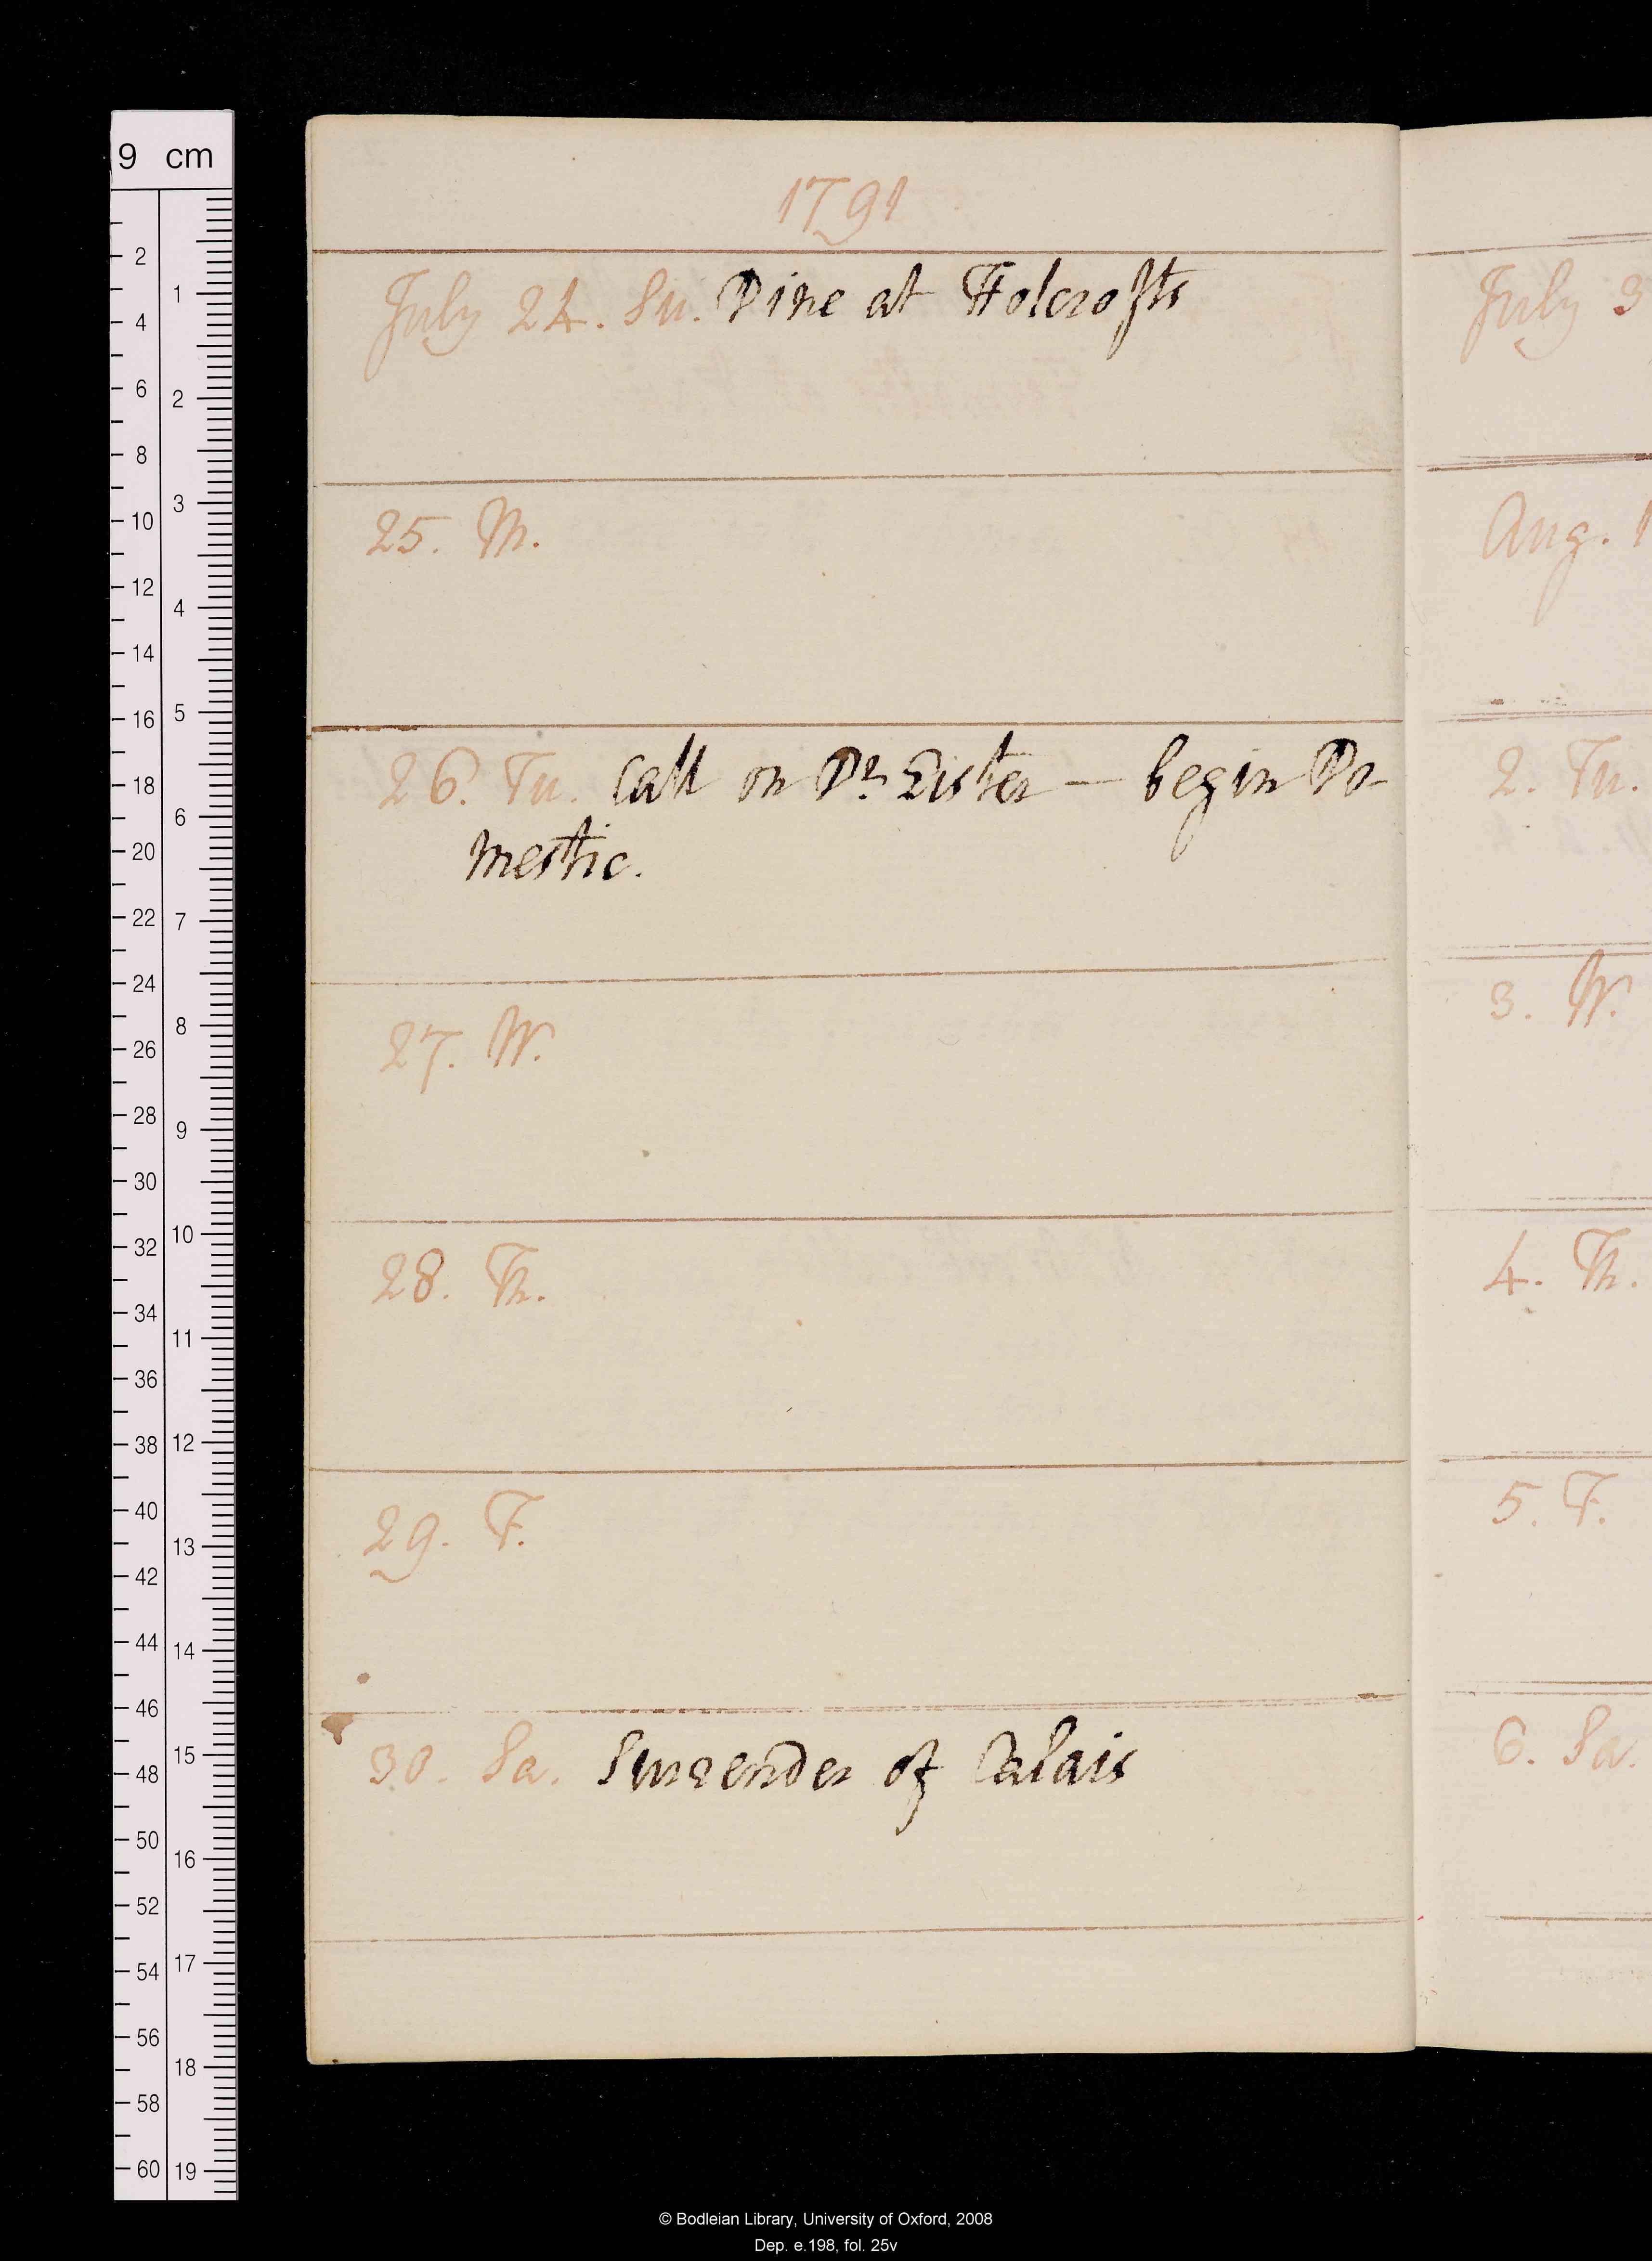 9 cm
1791
July 24. Su. Dine at Holcrofts
25. M.
26. Tu. Call on Dr Lister — begin Do-
mestic.
27. W.
28. Th.
29. F.
30. Sa. Surrender of Calais
July 3
Aug. 1
2. Tu.
3. W.
4. Th.
5. F.
6. Sa.
2
4
6
8
10
12
14
16
18
20
22
24
26
28
30
32
34
36
38
40
42
44
46
48
50
52
54
56
58
60
1
2
3
4
5
6
7
8
9
10
11
12
13
14
15
16
17
18
19
© Bodleian Library, University of Oxford, 2008
Dep. e.198, fol. 25v